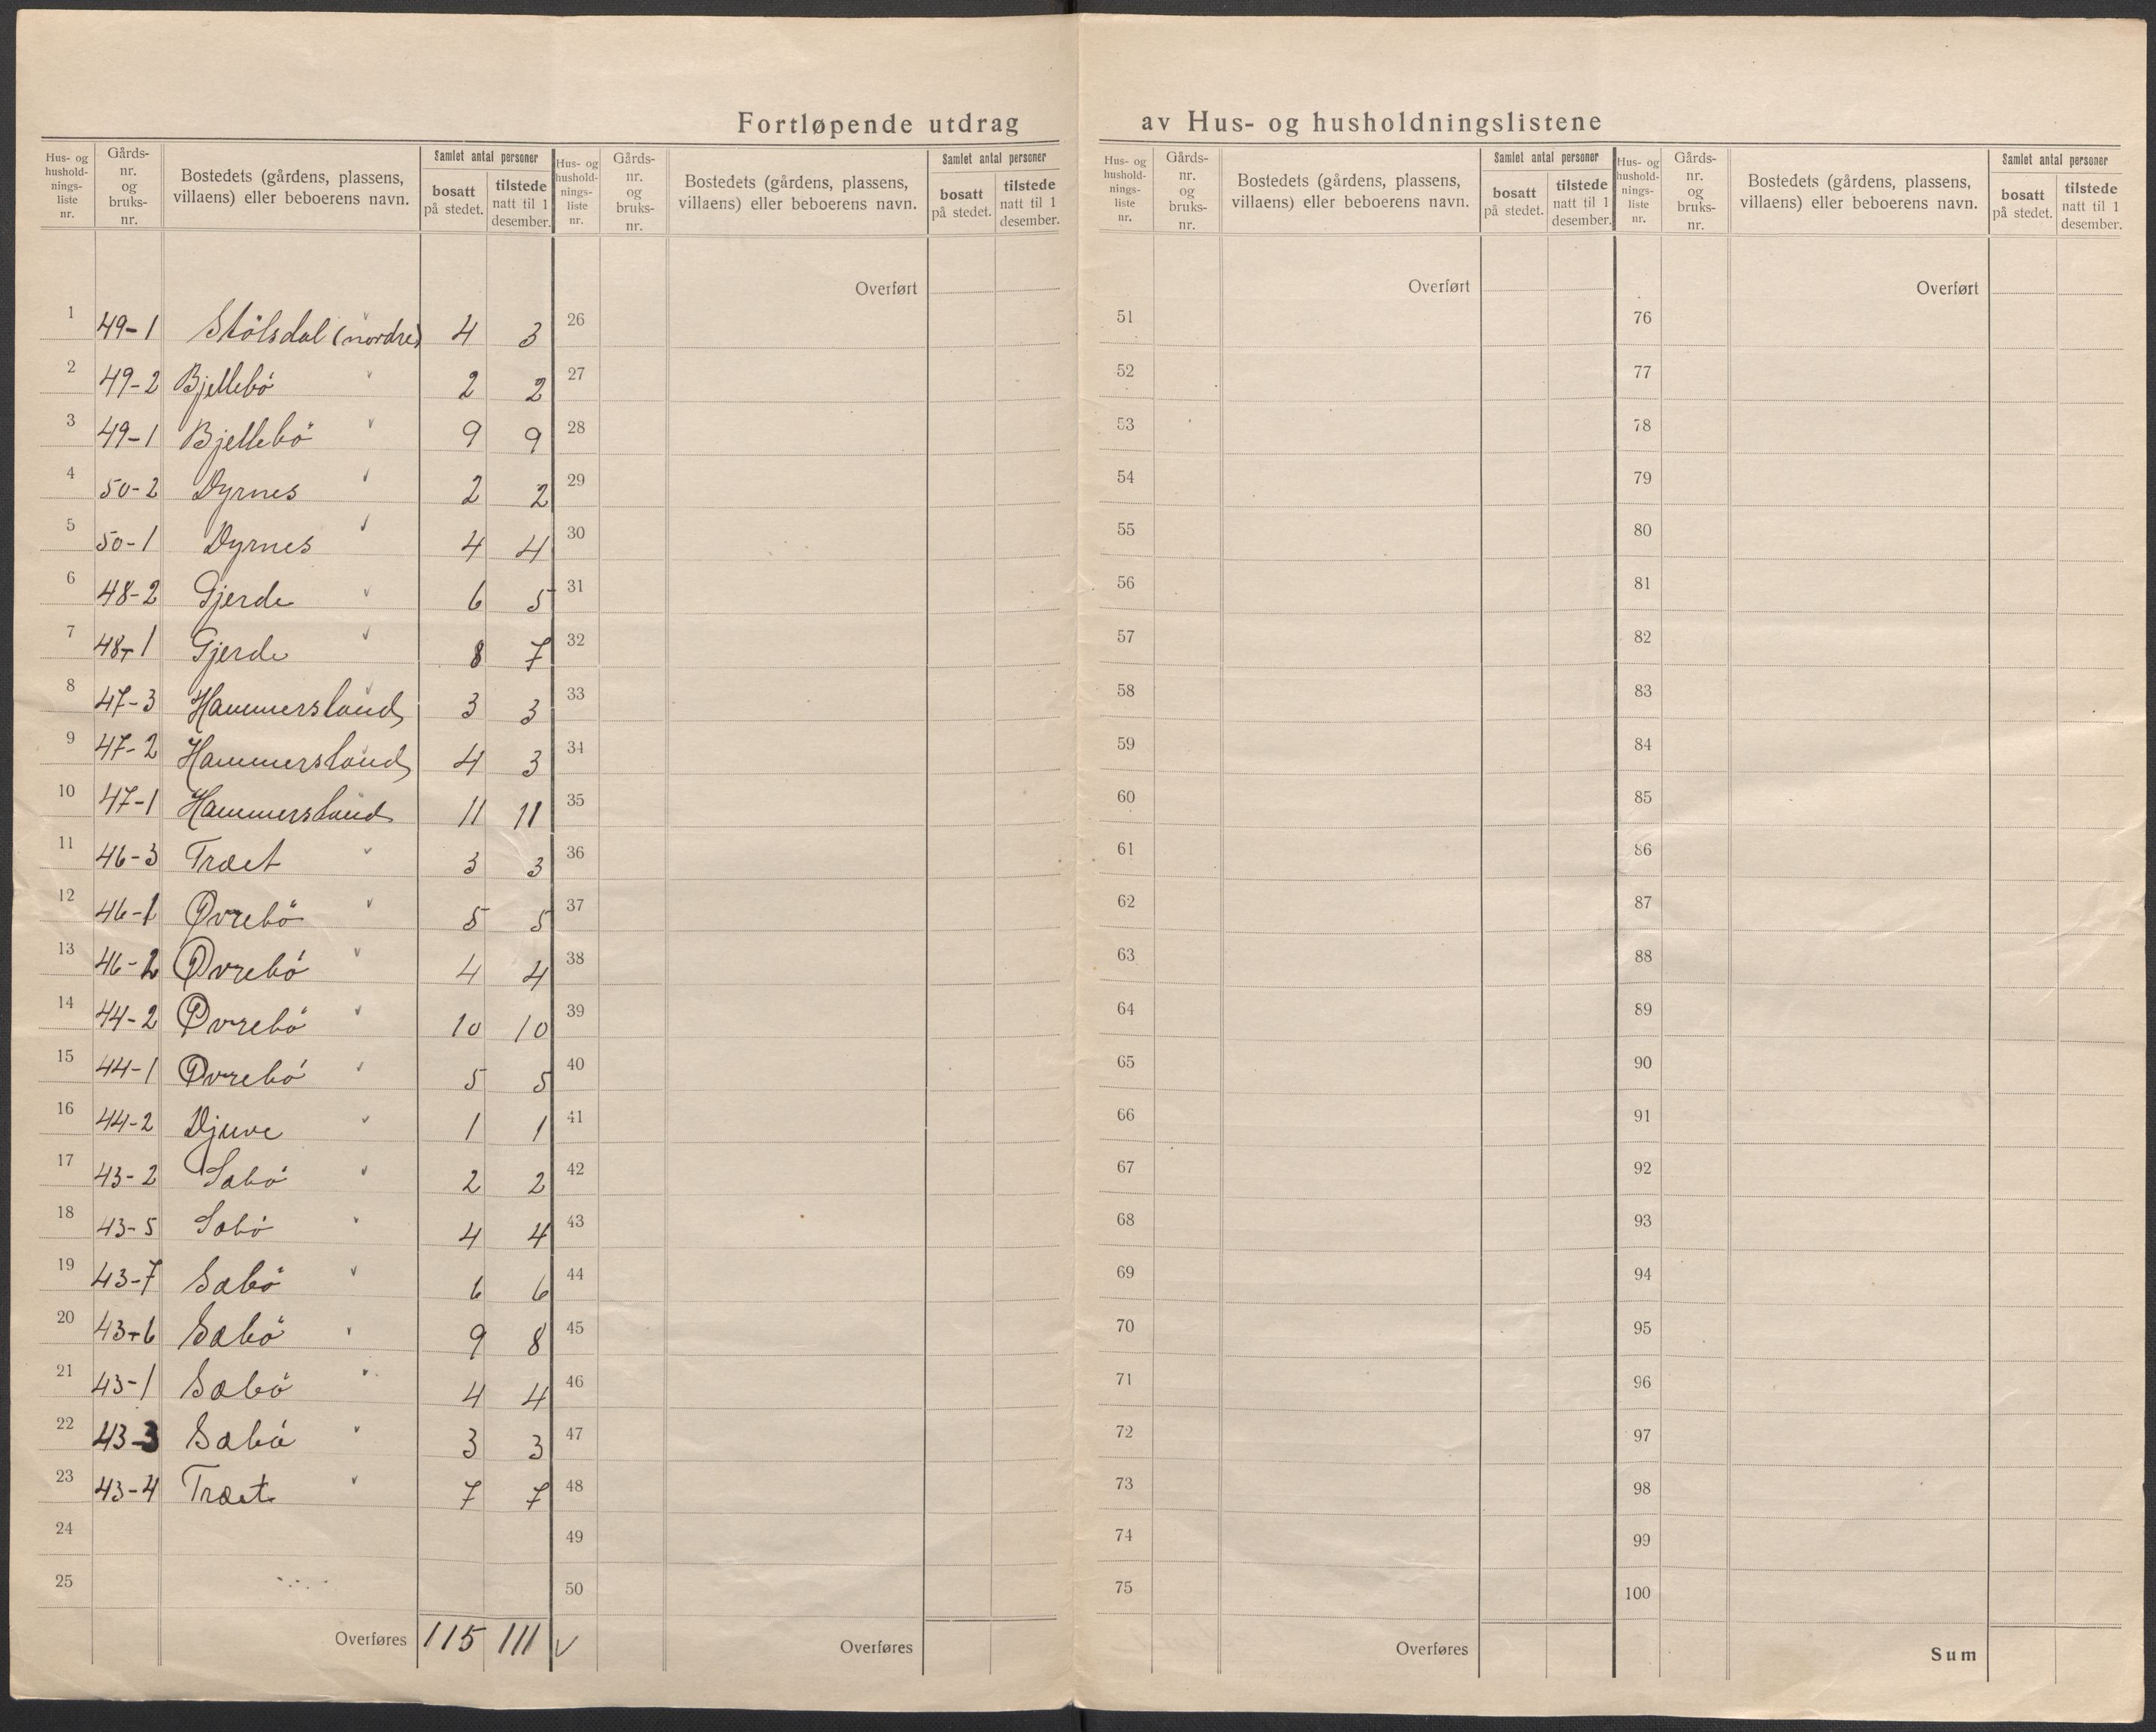 Fortløpende utdrag av Hus- og husholdningslistene
Hus- og hushold-nings-liste nr. Gårds-nr. og bruks-nr. Bostedets (gårdens, plassens, villaens) eller beboerens navn. Samlet antal personer bosatt på stedet. tilstede natt til 1 desember.
1 49-1 Stölsdal (nordre) 4 3
2 49-2 Bjellebö 2 2
3 49-1 Bjellebö 9 9
4 50-2 Dyrnes 2 2
5 50-1 Dyrnes 4 4
6 48-2 Gjerde 6 5
7 48-1 Gjerde 8 7
8 47-3 Hammersland 3 3
9 47-2 Hammersland 4 3
10 47-1 Hammersland 11 11
11 46-3 Træet 3 3
12 46-1 Øvrebö 5 5
13 46-2 Øvrebö 4 4
14 44-2 Øvrebö 10 10
15 44-1 Øvrebö 5 5
16 44-2 Djuve 1 1
17 43-2 Sæbö 2 2
18 43-5 Sæbö 4 4
19 43-7 Sæbö 6 6
20 43-6 Sæbö 9 8
21 43-1 Sæbö 4 4
22 43-3 Sæbö 3 3
23 43-4 Træet 7 7
24
25
Overføres 115 111 v
Hus- og hushold-nings-liste nr. Gårds-nr. og bruks-nr. Bostedets (gårdens, plassens, villaens) eller beboerens navn. Samlet antal personer bosatt på stedet. tilstede natt til 1 desember.
Overført
26
27
28
29
30
31
32
33
34
35
36
37
38
39
40
41
42
43
44
45
46
47
48
49
50
Overføres
Hus- og hushold-nings-liste nr. Gårds-nr. og bruks-nr. Bostedets (gårdens, plassens, villaens) eller beboerens navn. Samlet antal personer bosatt på stedet. tilstede natt til 1 desember.
Overført
51
52
53
54
55
56
57
58
59
60
61
62
63
64
65
66
67
68
69
70
71
72
73
74
75
Overføres
Hus- og hushold-nings-liste nr. Gårds-nr. og bruks-nr. Bostedets (gårdens, plassens, villaens) eller beboerens navn. Samlet antal personer bosatt på stedet. tilstede natt til 1 desember.
Overført
76
77
78
79
80
81
82
83
84
85
86
87
88
89
90
91
92
93
94
95
96
97
98
99
100
Sum